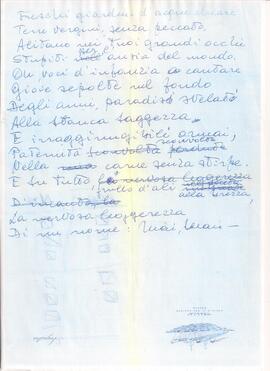 Freschi giardini d'acque chiare
Terre vergini, senza peccato,
Alitano nei tuoi grandi occhi
Stupiti per ansia del mondo.
Oh, voci d'infanzia a cantare
Gioie sepolte nel fondo
Degli anni, paradisi svelati
Alla stanca saggezza
E irraggiungibili ormai,
Paternità sconvolta sconvolta perduta
Della carne senza stirpe.
E su tutto, la nervosa leggerezza
frullo d'ali alla brezza,
La nervosa leggerezza
Di un nome: Mai, Mai —